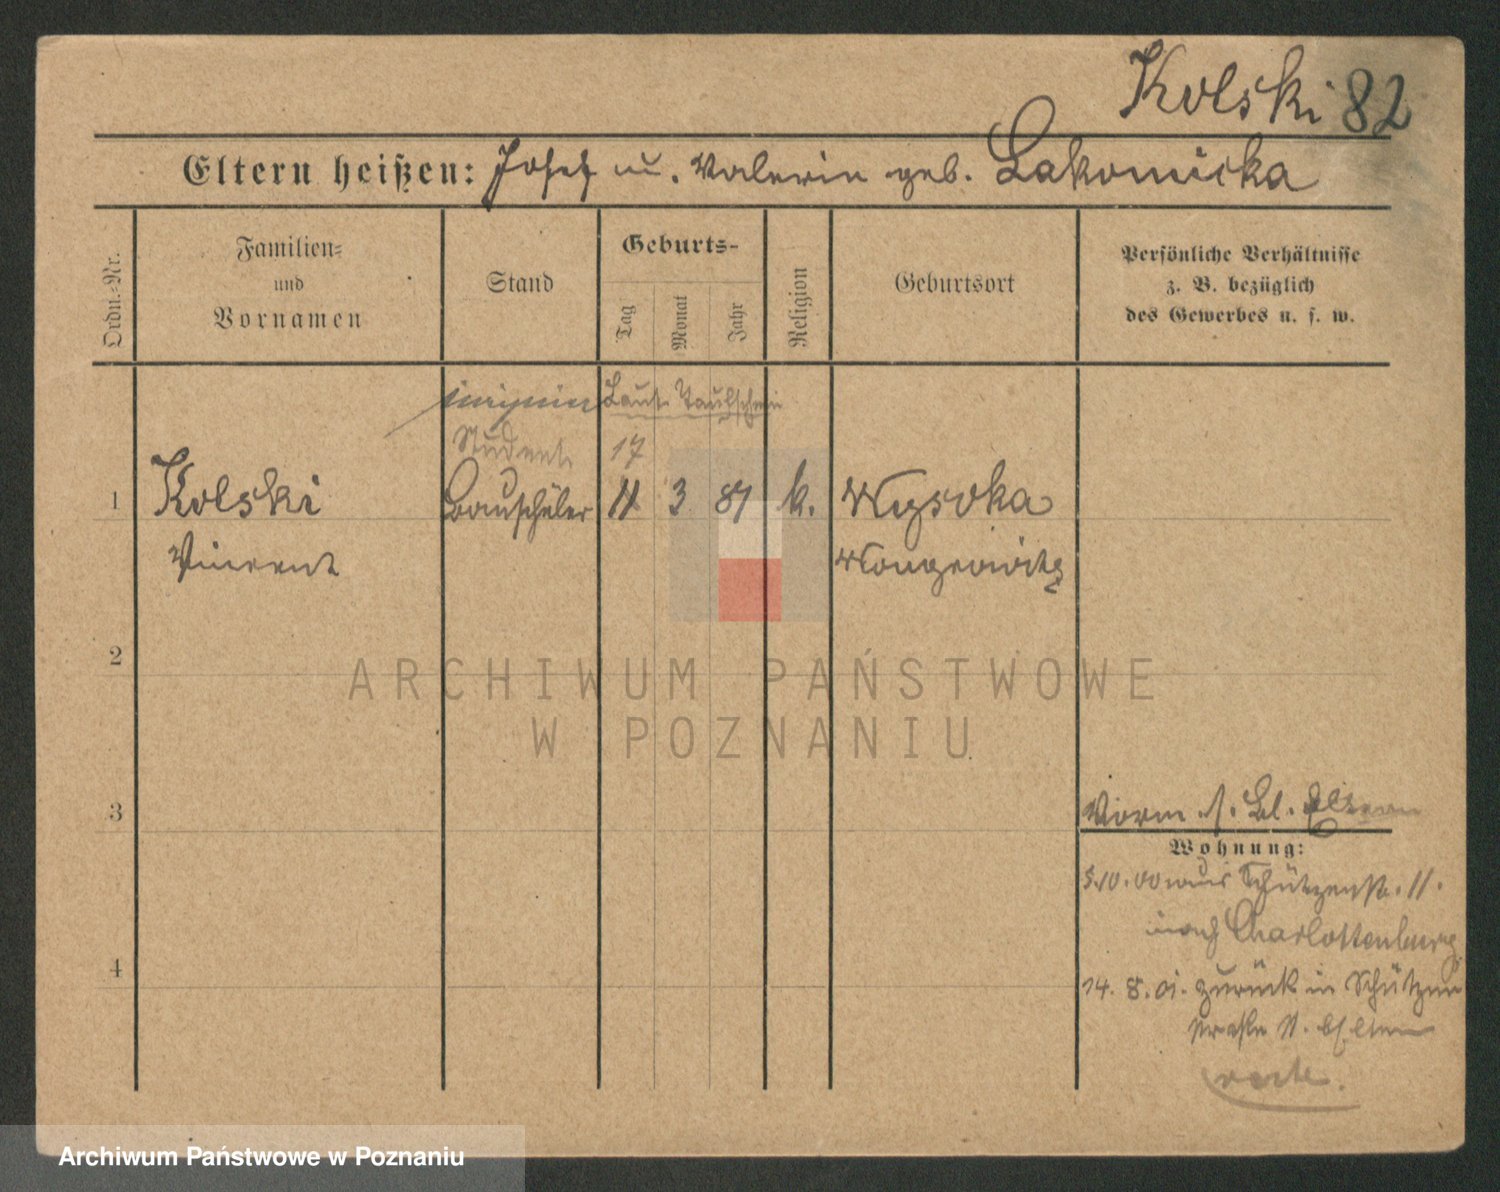 Kolski 82
Eltern heißen: Josef u. Valerie geb. Lakomicka
Ordn.-Nr.
Familien-
und
Vornamen
Stand
Geburts-
Tag
Monat
Jahr
Religion
Geburtsort
Persönliche Verhältnisse
z. B. bezüglich
des Gewerbes u. s. w.
Laut Taufschein
Student 17
1 Kolski Bauschüler 11 3 81 k. Wysoka
Vincent Wongrowitz
2
ARCHIWUM PAŃSTWOWE
W POZNANIU
3
Vorm s. Bl. Eltern
Wohnung:
aus Schützenstr. 11.
nach Charlottenburg
4
14. 8. 01. zurück in Schützen
straße b/ Eltern
Archiwum Państwowe w Poznaniu